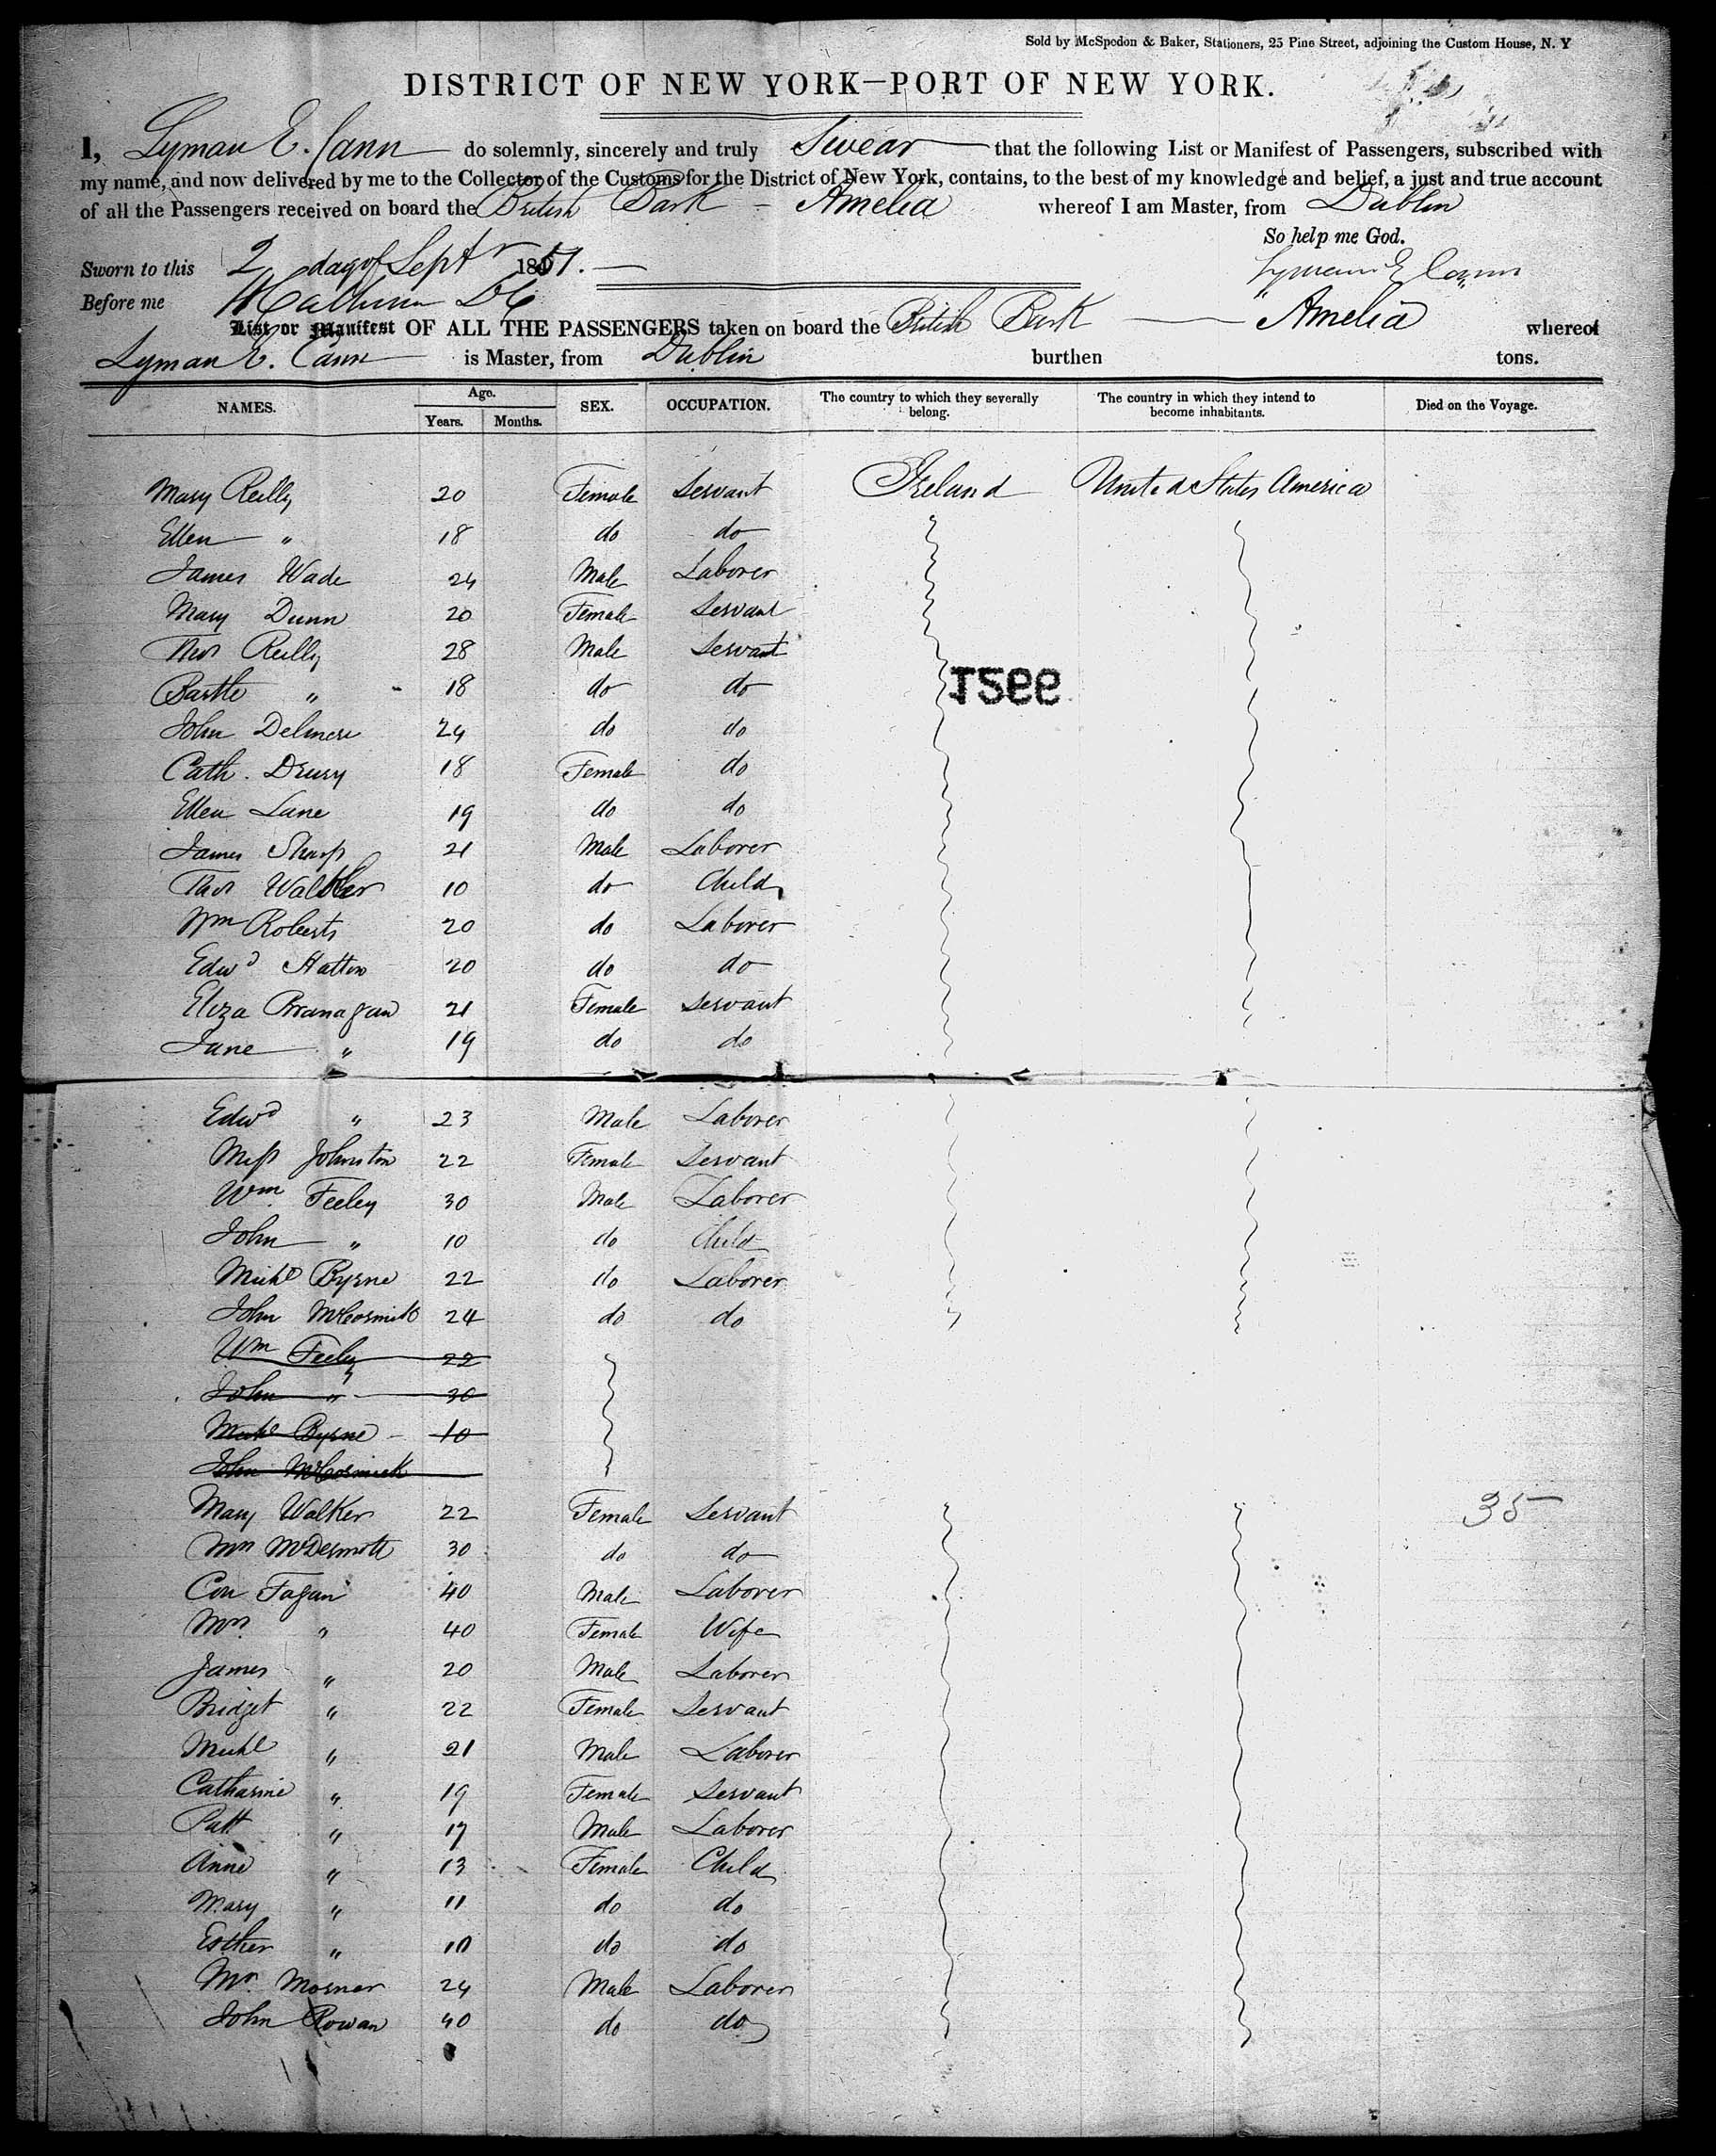 Sold by McSpedon & Baker, Stationers, 25 Pine Street, adjoining the Custom House, N. Y
DISTRICT OF NEW YORK—PORT OF NEW YORK.
I, Lyman E. Cann do solemnly, sincerely and truly Swear that the following List or Manifest of Passengers, subscribed with
my name, and now delivered by me to the Collector of the Customs for the District of New York, contains, to the best of my knowledge and belief, a just and true account
of all the Passengers received on board the British Bark - Amelia whereof I am Master, from Dublin
So help me God.
Sworn to this 2 day of Sept r 1851. Lyman E Cann
Before me
List or Manifest OF ALL THE PASSENGERS taken on board the British Bark Amelia whereof
Lyman E. Cann is Master, from Dublin burthen tons.
NAMES. Age. Years. Months. SEX. OCCUPATION. The country to which they severally belong. The country in which they intend to become inhabitants. Died on the Voyage.
Mary Reilly 20 Female Servant Ireland United States America
Ellen " 18 do do
James Wade 24 Male Laborer
Mary Dunn 20 Female Servant
Thos Reilly 28 Male Servant
Bartle " 18 do do
9921
John Delmere 24 do do
Cath. Drury 18 Female do
Ellen Lane 19 do do
James Sharp 21 Male Laborer
Thos 10 do Child
Wm Roberts 20 do Laborer
Edwd Hatton 20 do do
Eliza Branagan 21 Female Servant
Jane " 19 do do
Edwd " 23 Male Laborer
Miss Johnston 22 Female Servant
Wm Feeley 30 Male Laborer
John " 10 do Child
Michl Byrne 22 do Laborer
John McCormick 24 do do
Wm Feeley 22
John " 30
Michl Byrne 10
John McCormick
Mary Walker 22 Female Servant 35
Mrs McDermott 30 do do
Con Fagan 40 Male Laborer
Mrs " 40 Female Wife
James " 20 Male Laborer
Bridget " 22 Female Servant
Michl " 21 Male Laborer
Catharine " 19 Female Servant
Patt " 17 Male Laborer
Anne " 13 Female Child
Mary " 11 do do
Esther " 10 do do
Mr. Mosner 24 Male Laborer
John Rowan 40 do do